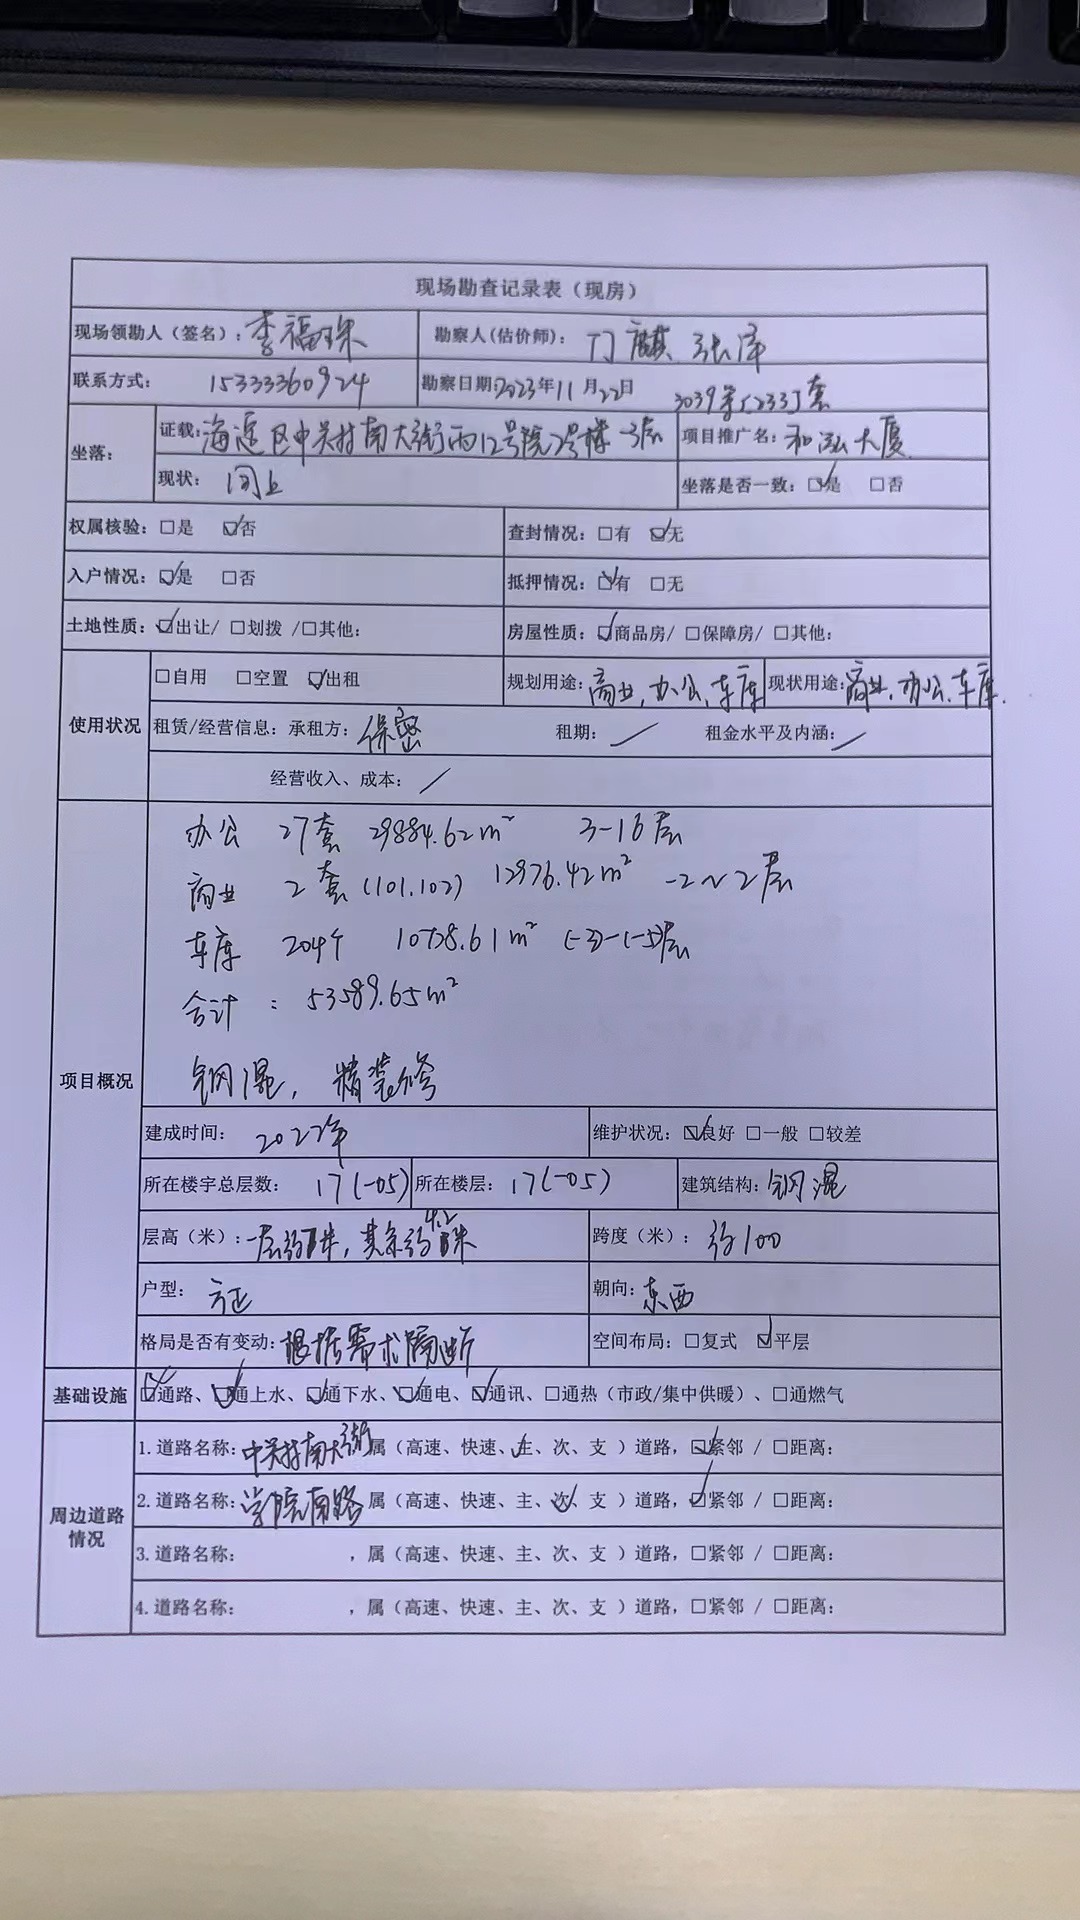 现场勘查记录表（现房）
现场领勘人（签名）：李福珠 勘察人(估价师)：门麒 张泽
联系方式：15333360924 勘察日期:2023年11月22日
3039等233套
坐落： 证载:海淀区中关村南大街甲12号院2号楼 项目推广名：和泓大厦
现状：同上 坐落是否一致：☑是 □否
权属核验：□是 ☑否 查封情况：□有 ☑无
入户情况：☑是 □否 抵押情况：☑有 □无
土地性质：☑出让/ □划拨 /□其他： 房屋性质：☑商品房/ □保障房/ □其他：
使用状况 □自用 □空置 ☑出租 规划用途：商业、办公、车库 现状用途：商业、办公、车库
租赁/经营信息：承租方：保密 租期：／ 租金水平及内涵：／
经营收入、成本：／
项目概况
办公 27套 29884.62m² 3-16层
商业 2套(101.102) 12976.42m² -2～2层
车库 204个 m² (-3)-(-5)层
合计：53589.65m²
钢混，精装修
建成时间：2022年 维护状况：☑良好 □一般 □较差
所在楼宇总层数：17(-05) 所在楼层：17(-05) 建筑结构：钢混
层高（米）：一层约 米，其余约4.2米 跨度（米）：约100
户型：方正 朝向：东西
格局是否有变动：根据需求隔断 空间布局：□复式 ☑平层
基础设施 ☑通路、☑通上水、☑通下水、☑通电、☑通讯、□通热（市政/集中供暖）、□通燃气
周边道路情况
1.道路名称：中关村南大街属（高速、快速、主、次、支 ）道路，☑紧邻 / □距离：
2.道路名称：学院南路属（高速、快速、主、次、支 ）道路，☑紧邻 / □距离：
3.道路名称： ，属（高速、快速、主、次、支 ）道路，□紧邻 / □距离：
4.道路名称： ，属（高速、快速、主、次、支 ）道路，□紧邻 / □距离：